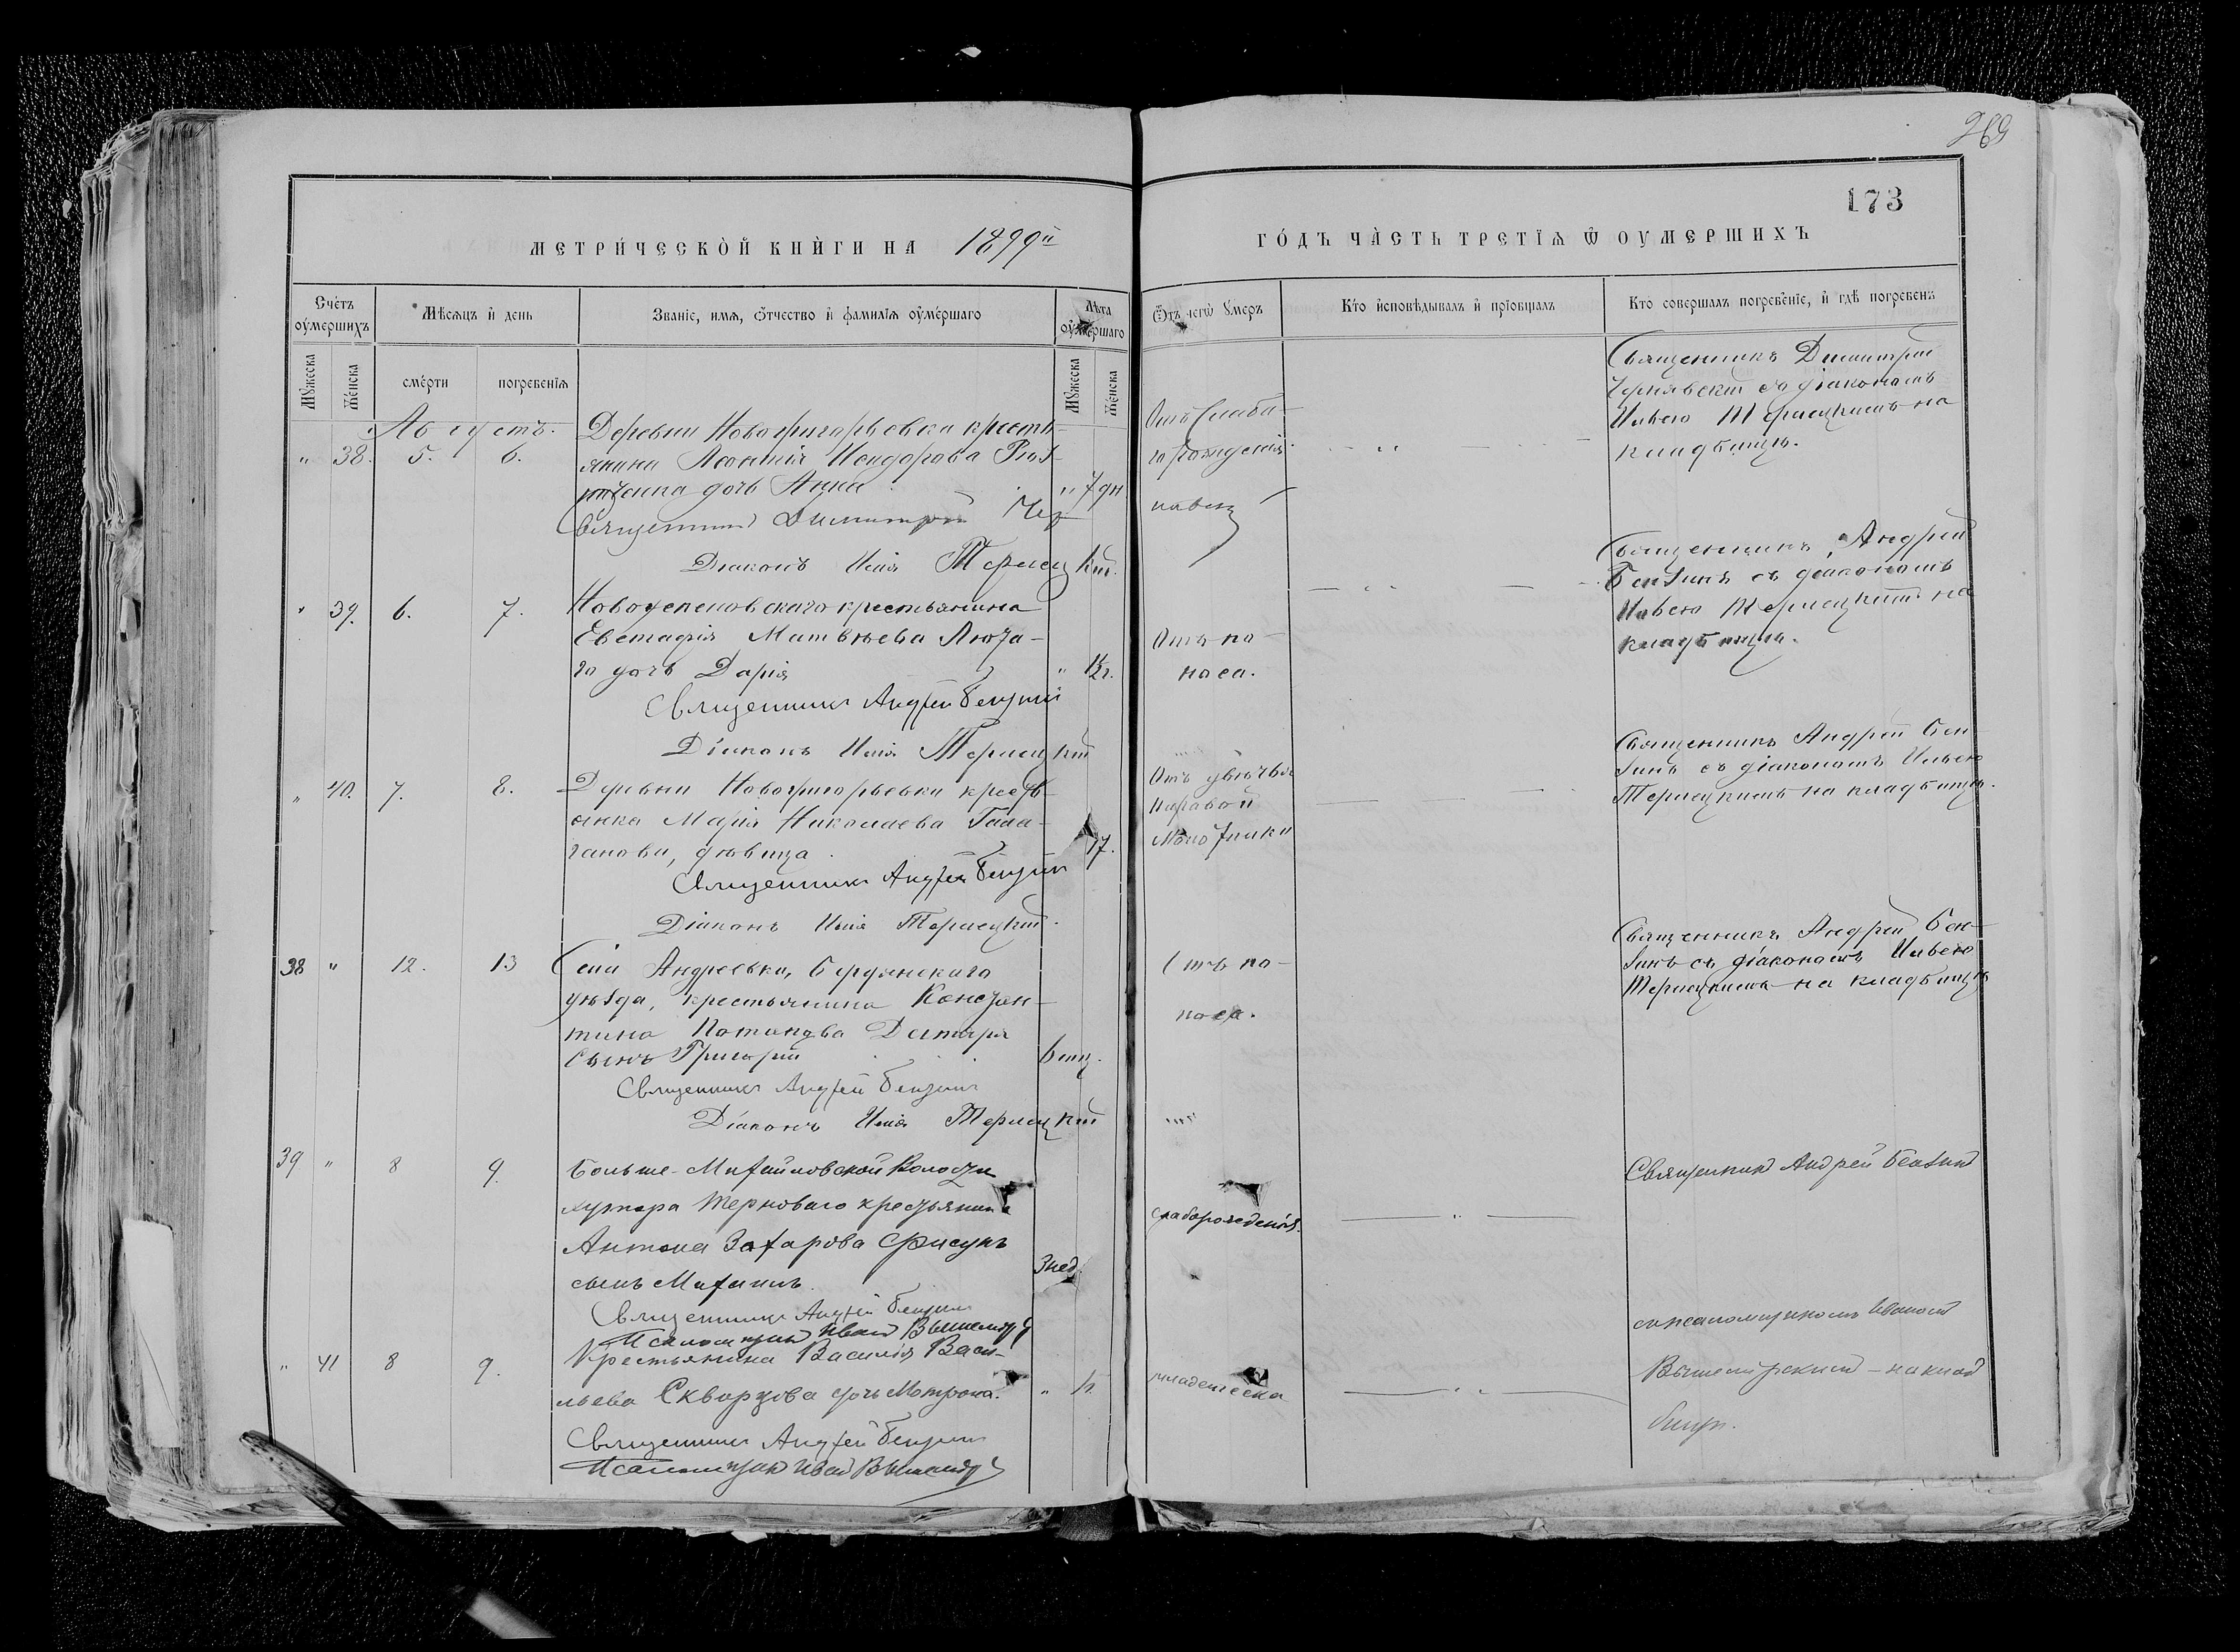 269
173
МЕТРИ́ЧЕСКОЙ КНИ́ГИ НА 1899й
ГО́ДЪ ЧА́СТЬ ТРЕТІѦ Ѿ ОУМЕРШИХЪ
Сче́тъ оу҆ме́ршихъ
Мѣ́сяцъ и҆ день
Званіе, имѧ, ѻтчество и҆ фамилїѧ оу҆ме́ршаго
Лѣта оу҆ме́ршаго
Ѿ чегѡ̀ Умеръ
Кто̀ и҆сповѣдывалъ и҆ прїобщалъ
Кто̀ совершалъ погребе́нїе, и҆ гдѣ̀ погребенъ
Мꙋжеска
Же́нска
сме́рти
погребенїѧ
Мꙋжеска
Же́нска
Августъ.
" 38. 5. 6.
Деревни Новогригорьевки кресть-
янина Леонтія Исидорова
дочь Анна " 7 дн
Священникъ Димитрій Чер
Діаконъ Илія Терлецкій.
Отъ слаба-
го рожденія
Священникъ Димитрій
Чернявскій съ діакономъ
Иліею Терлецкимъ на
кладбищѣ.
" 39. 6. 7.
Новоуспеновскаго крестьянина
Евстафія Матвѣева Люта-
го дочь Дарія " 1/2 г.
Священникъ Андрей Бензинъ
Діаконъ Илія Терлецкій
Отъ по-
носа.
Священникъ Андрей
Бензинъ съ діакономъ
Иліею Терлецкимъ на
кладбищѣ.
" 40. 7. 8.
Деревни Новогригорьевки кресть-
янка Марія Николаева Гала-
ганова, дѣвица 17.
Священникъ Андрей Бензинъ
Діаконъ Илія Терлецкій.
Отъ увѣчья
паровой
молотилки
Священникъ Андрей Бен-
зинъ съ діакономъ Иліею
Терлецкимъ на кладбищѣ.
38 " 12. 13
Села Андреевки, Бердянскаго
уѣзда, крестьянина Констан-
тина Потапова Дегтяря
сынъ Григорій 6 мц.
Священникъ Андрей Бензинъ
Діаконъ Илія Терлецкій
Отъ по-
носа.
Священникъ Андрей Бен-
зинъ съ діакономъ Иліею
Терлецкимъ на кладбищѣ
39 " 8 9.
Больше-Михайловской волости
хутора Терноваго крестьянина
Антона Захарова Фисунъ
сынъ Михаилъ 3 нед
Священникъ Андрей Бензинъ
Псаломщикъ Иван
слаборожденія.
Священник Андрей Бензин
" 41 8 9.
Крестьянина Василія Васи-
льева Скворцова дочь Матрона. "
Священникъ Андрей Бензинъ
Псаломщик Иван
младенческа
съ псаломщикомъ Иваном
на клад
бищѣ.